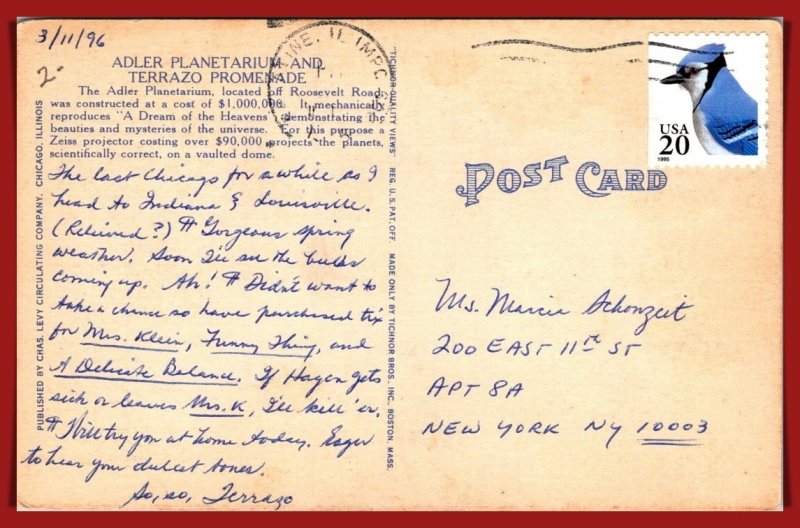 3/11/96
2-
ADLER PLANETARIUM AND
TERRAZO PROMENADE
The Adler Planetarium, located off Roosevelt Road,
was constructed at a cost of $1,000,000. It mechanically
reproduces "A Dream of the Heavens" demonstrating the
beauties and mysteries of the universe. For this purpose a
Zeiss projector costing over $90,000 projects the planets,
scientifically correct, on a vaulted dome.
The last Chicago for awhile as I
head to Indiana & Louisville.
(Relieved?) ¶ Gorgeous spring
weather. Soon I'll see the bulbs
coming up. Ah! ¶ Didn't want to
take a chance so have purchased tix
for Mrs. Klein, Funny Thing, and
A Delicate Balance. If Hagen gets
sick or leaves Mrs. K, I'll kill 'er.
¶ Will try you at home today. Eager
to hear your dulcet tones.
So, so, Terrazo
PUBLISHED BY CHAS. LEVY CIRCULATING COMPANY, CHICAGO, ILLINOIS
"TICHNOR QUALITY VIEWS" REG. U.S. PAT. OFF. MADE ONLY BY TICHNOR BROS., INC., BOSTON, MASS.
INE. IL IMPC
USA
20
1995
POST CARD
Ms. Marcie Schonzeit
200 EAST 11TH ST
APT 8A
NEW YORK NY 10003